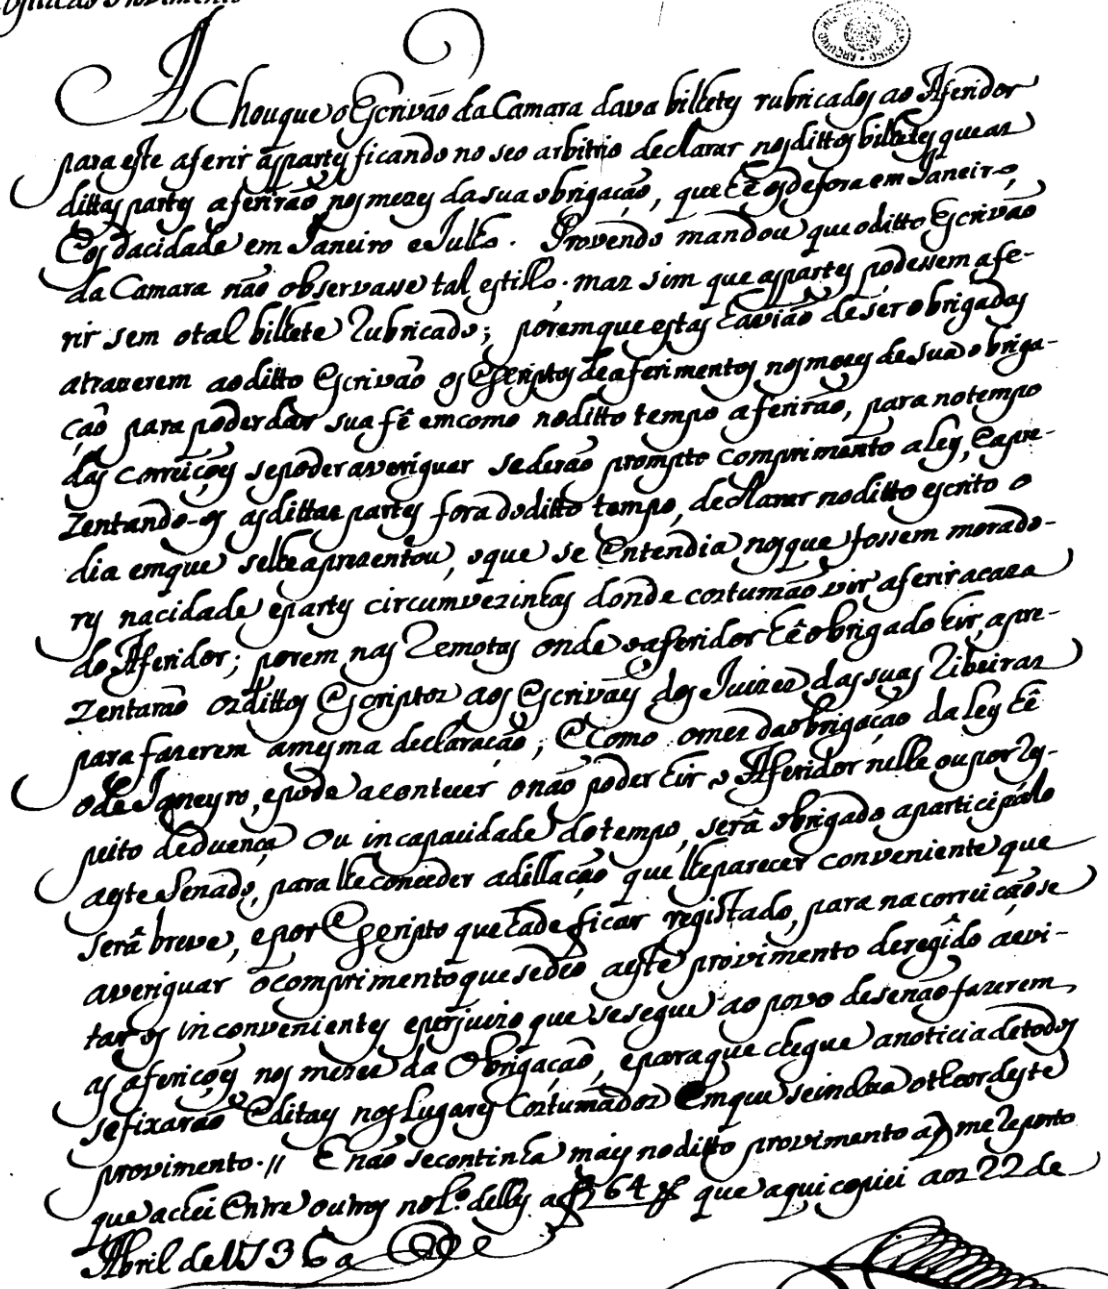 AChou que o Escrivão da Camara dava billetes rubricados ao Aferidor
para este aferir as partes ficando no seo arbitrio declarar nos dittos billetes que as
dittas partes aferirão nos mezes da sua obrigação, que hê os de fora em Janeiro,
E os da cidade em Janeiro e Julho. Provendo mandou que o ditto Escrivão
da Camara não observasse tal estillo; mas sim que as partes podessem afe-
rir sem o tal billete Rubricado; porem que estas havião de ser obrigadas
a trazerem ao ditto Escrivão os Escriptos de aferimentos nos mezes de sua obriga-
ção para poder dar sua fê em como no ditto tempo aferirão, para no tempo
das Correições se poder averiguar se derão prompto comprimento a ley, E apre-
zentando-os as dittas partes fora do ditto tempo, declarar no ditto escrito o
dia em que se lhe aprezentou, o que se Entendia nos que fossem morado-
res na cidade e partes circumvezinhas donde costumão vir aferir a caza
do Aferidor; porem nas Remotas onde o aferidor hê obrigado hir, apre-
zentarão os dittos Escriptos aos Escrivães dos Juizes das suas Ribeiras
para fazerem a mesma declaração; E Como o mes da obrigação da ley hê
o de Janeyro, e pode acontecer o não poder hir o Aferidor nelle ou por Res-
peito de duença Ou incapacidade do tempo, serâ obrigado a participâlo
a este Senado, para lhe conceder a dillação que lhe parecer conveniente que
serâ breve, e por Escripto que hade ficar registado, para na correição se
averiguar o comprimento que se deo a este provimento deregido a evi-
tar os inconvenientes e perjuizo que se segue ao povo de senão fazerem
as afericões nos mezes da Obrigação, e para que chegue a noticia de todos
se fixarão Editaes nos Lugares Costumados Em que se inclua o theor deste
provimento. // E não se continha mais no ditto provimento a q me Reporto
que achei Entre outros no L.º delles a f 64 que aqui copiei aos 22 de
Abril de 1736 a